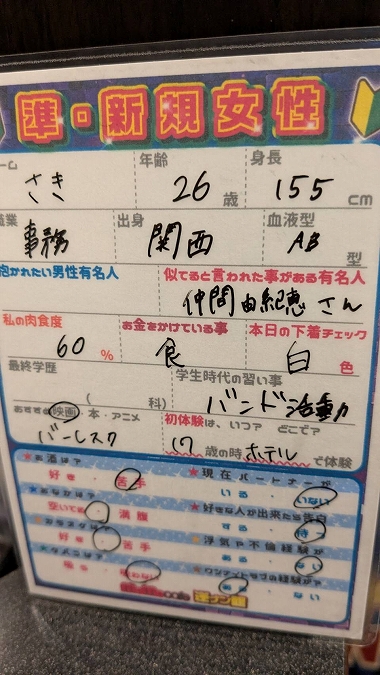 準・新規女性
ーム 年齢 身長
さき 26歳 155cm
職業 出身 血液型
事務 関西 AB型
抱かれたい男性有名人 似てると言われた事がある有名人
仲間由紀恵さん
私の肉食度 お金をかけている事 本日の下着チェック
60% 食 白色
最終学歴 学生時代の習い事
( 科) バンド活動
おすすめ映画・本・アニメ 初体験は、いつ? どこで?
バーレスク 17歳の時ホテルで体験
お酒は? 現在パートナーが
好き・苦手 いる・いない
★好きな人が出来たら告白
空いてる・満腹 する・待つ
カラオケは? ★浮気や不倫経験が
好き・苦手 ある・ない
タバコは? ワンナイトラブの経験が?
吸う・吸わない ある・ない